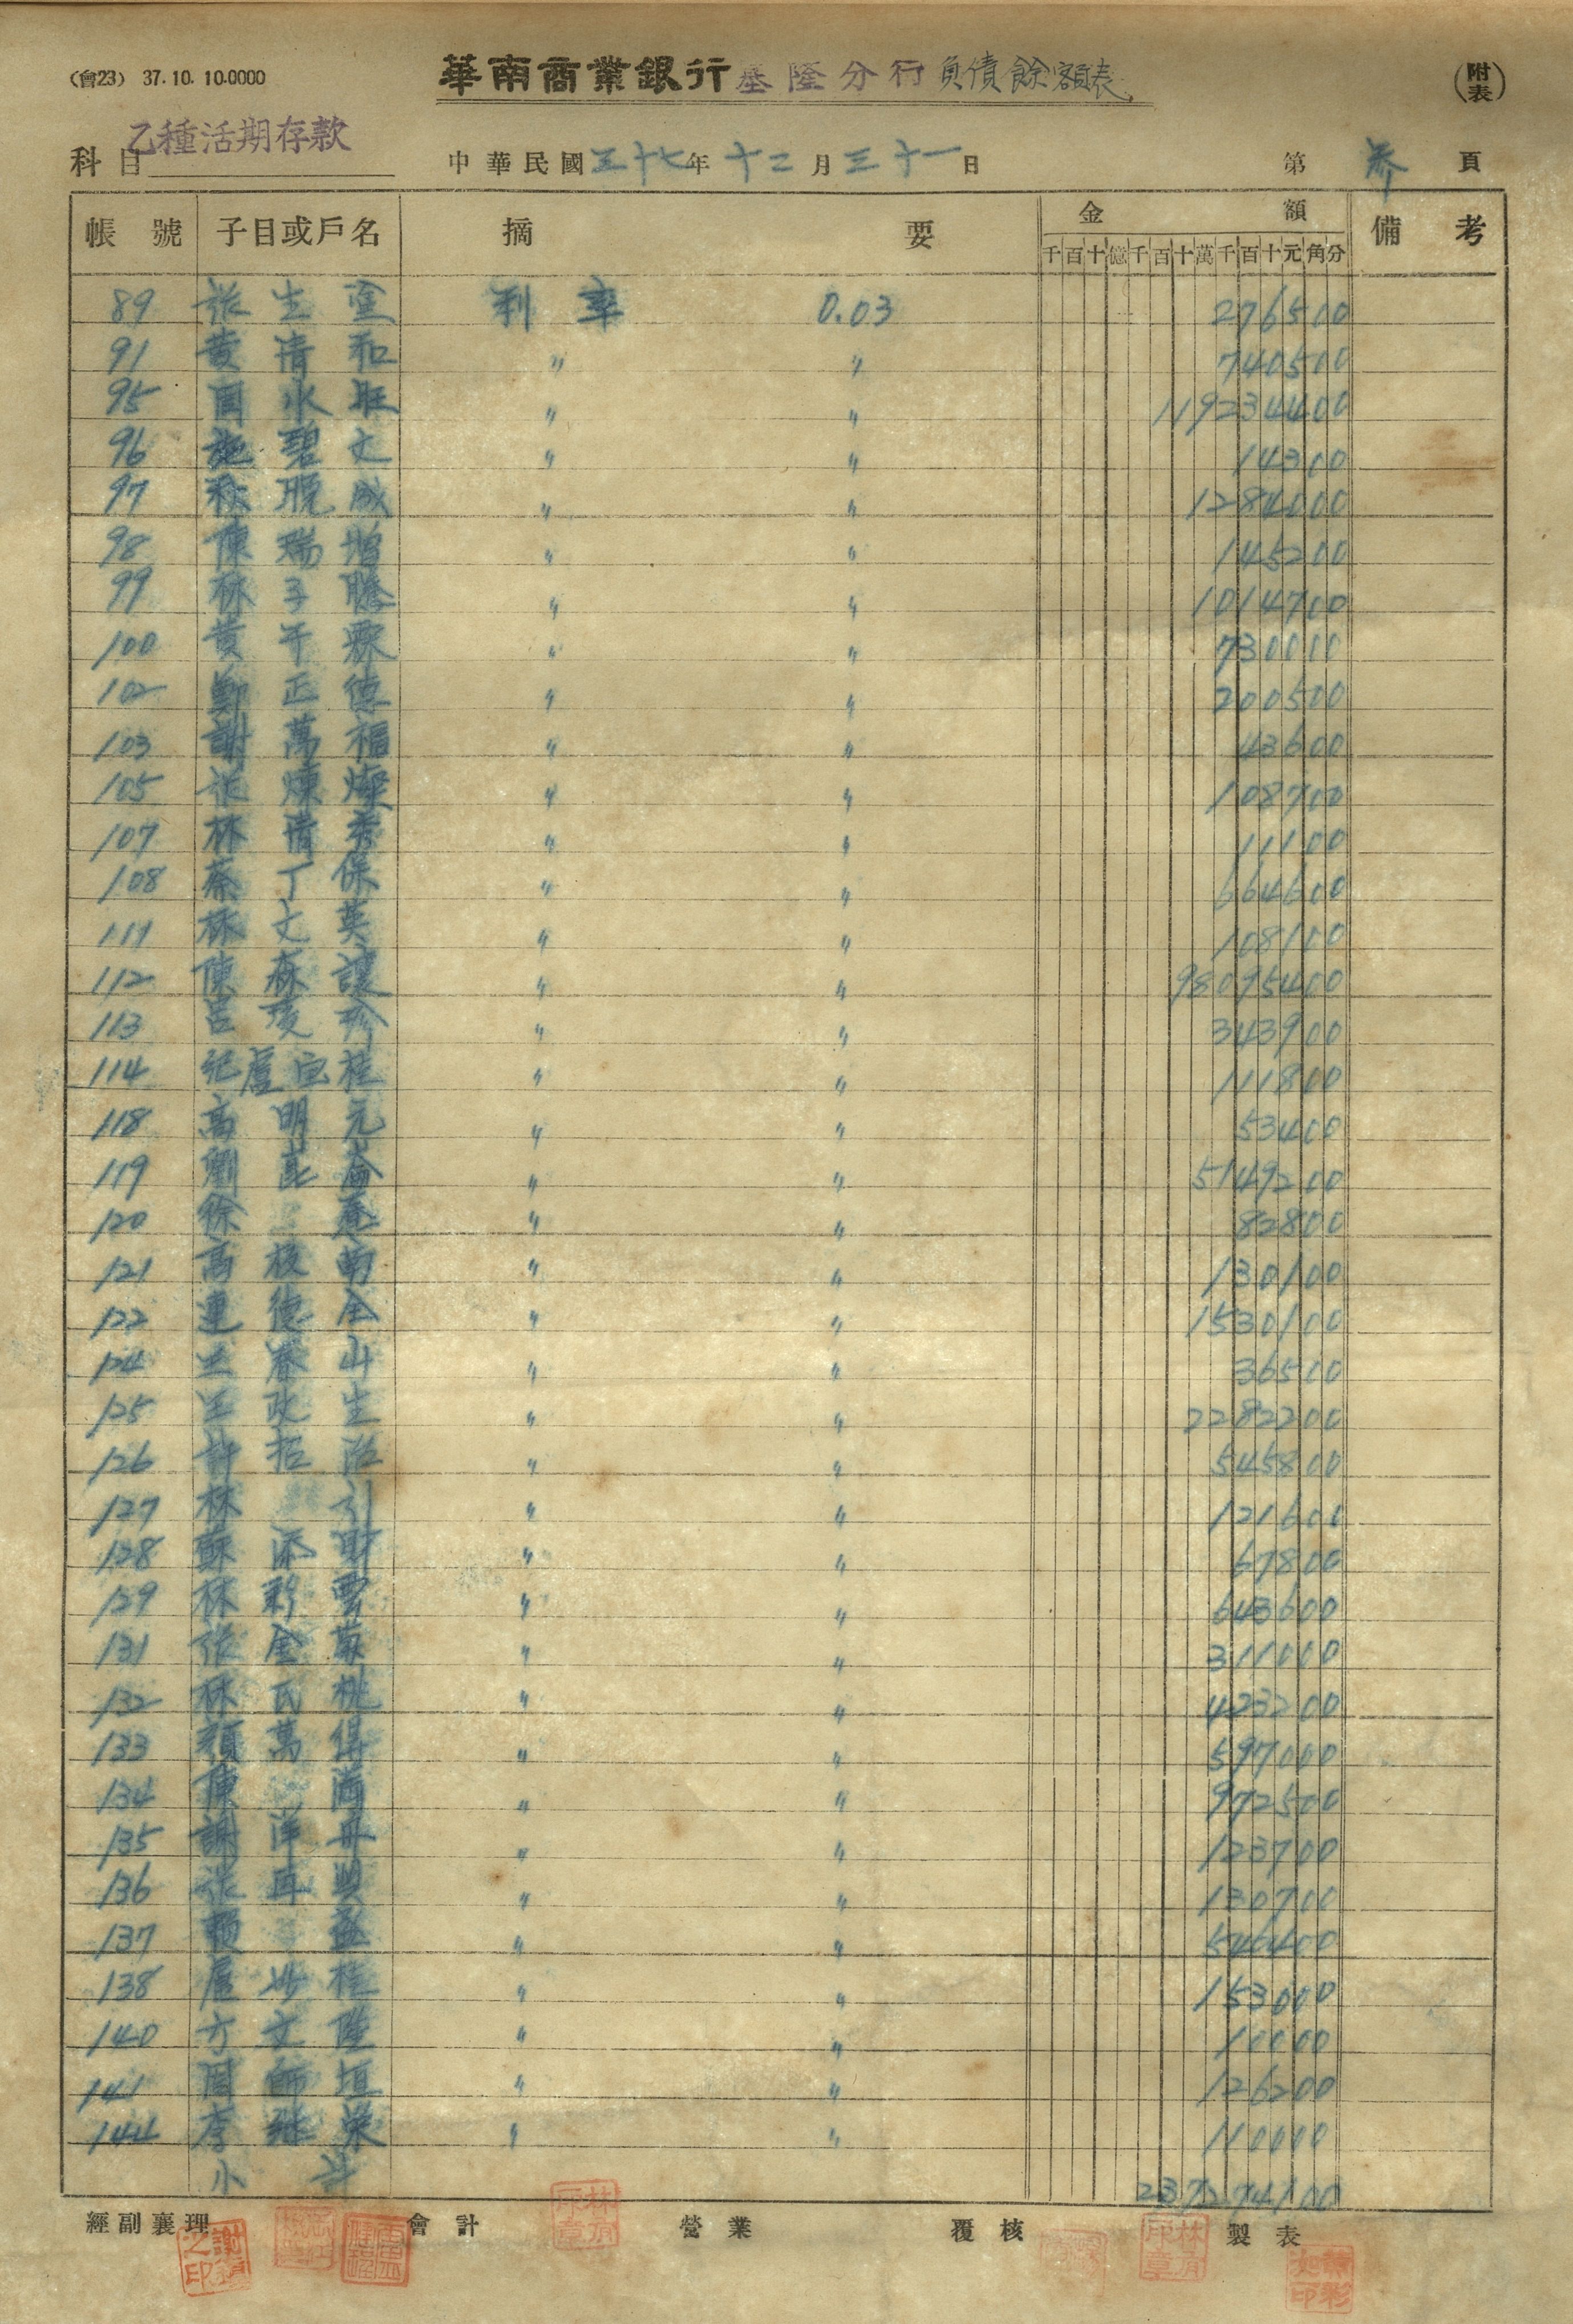 (會23) 37.10.10.0000
華南商業銀行基隆分行負債餘額表
(附表)
科目 乙種活期存款
中華民國三十七年十二月三十一日
第 叁 頁
帳號 子目或戶名 摘要 金額 備考
千百十億千百十萬千百十元角分
89 張生 利率 0.03 276500
91 黄清和 〃 〃 740500
95 周水旺 〃 〃 119234400
96 施碧文 〃 〃 14300
97 成 〃 〃 1284000
98 陳瑞增 〃 〃 145200
99 林子騰 〃 〃 1014700
100 黄千霖 〃 〃 730000
102 鄭正德 〃 〃 200500
103 謝萬福 〃 〃 43600
105 張煉燦 〃 〃 108700
107 林清秀 〃 〃 11100
108 蔡丁保 〃 〃 664600
111 林文英 〃 〃 108100
112 陳森讓 〃 〃 98095400
113 呂珍 〃 〃 343900
114 紀盧宝桂 〃 〃 111800
118 高明元 〃 〃 53400
119 劉崑崙 〃 〃 5149200
120 徐 〃 〃 82800
121 高枝南 〃 〃 130100
122 連德全 〃 〃 1530100
124 春山 〃 〃 36500
125 王改生 〃 〃 2282200
126 許招治 〃 〃 545800
127 林引 〃 〃 121600
128 蘇添財 〃 〃 67800
129 林彩雲 〃 〃 643600
131 張金菊 〃 〃 311000
132 林氏桃 〃 〃 423200
133 顏萬得 〃 〃 597000
134 陳 〃 〃 972500
135 謝洋丹 〃 〃 123700
136 張再興 〃 〃 130700
137 賴益 〃 〃 546400
138 盧沙桂 〃 〃 153000
140 方文陞 〃 〃 10000
141 周師垣 〃 〃 126200
144 李继荣 〃 〃 110000
小計 237294100
經副襄理 會計 營業 覆核 製表